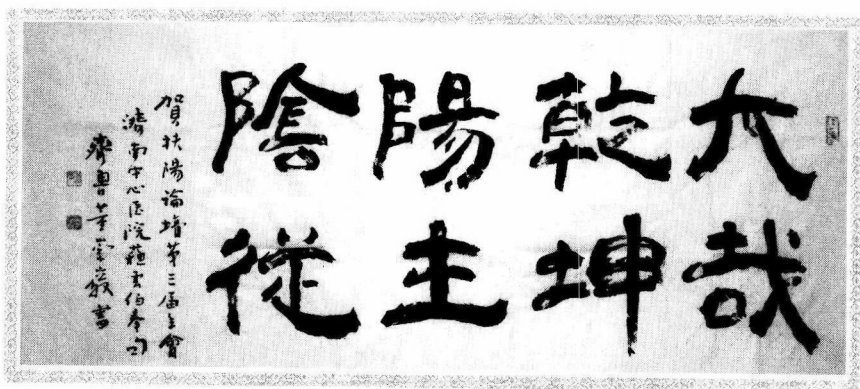 大哉
乾坤
陽主
陰從
賀扶陽論壇第三届大會
濟南中心医院蘇玄伯奉句
齊魯書